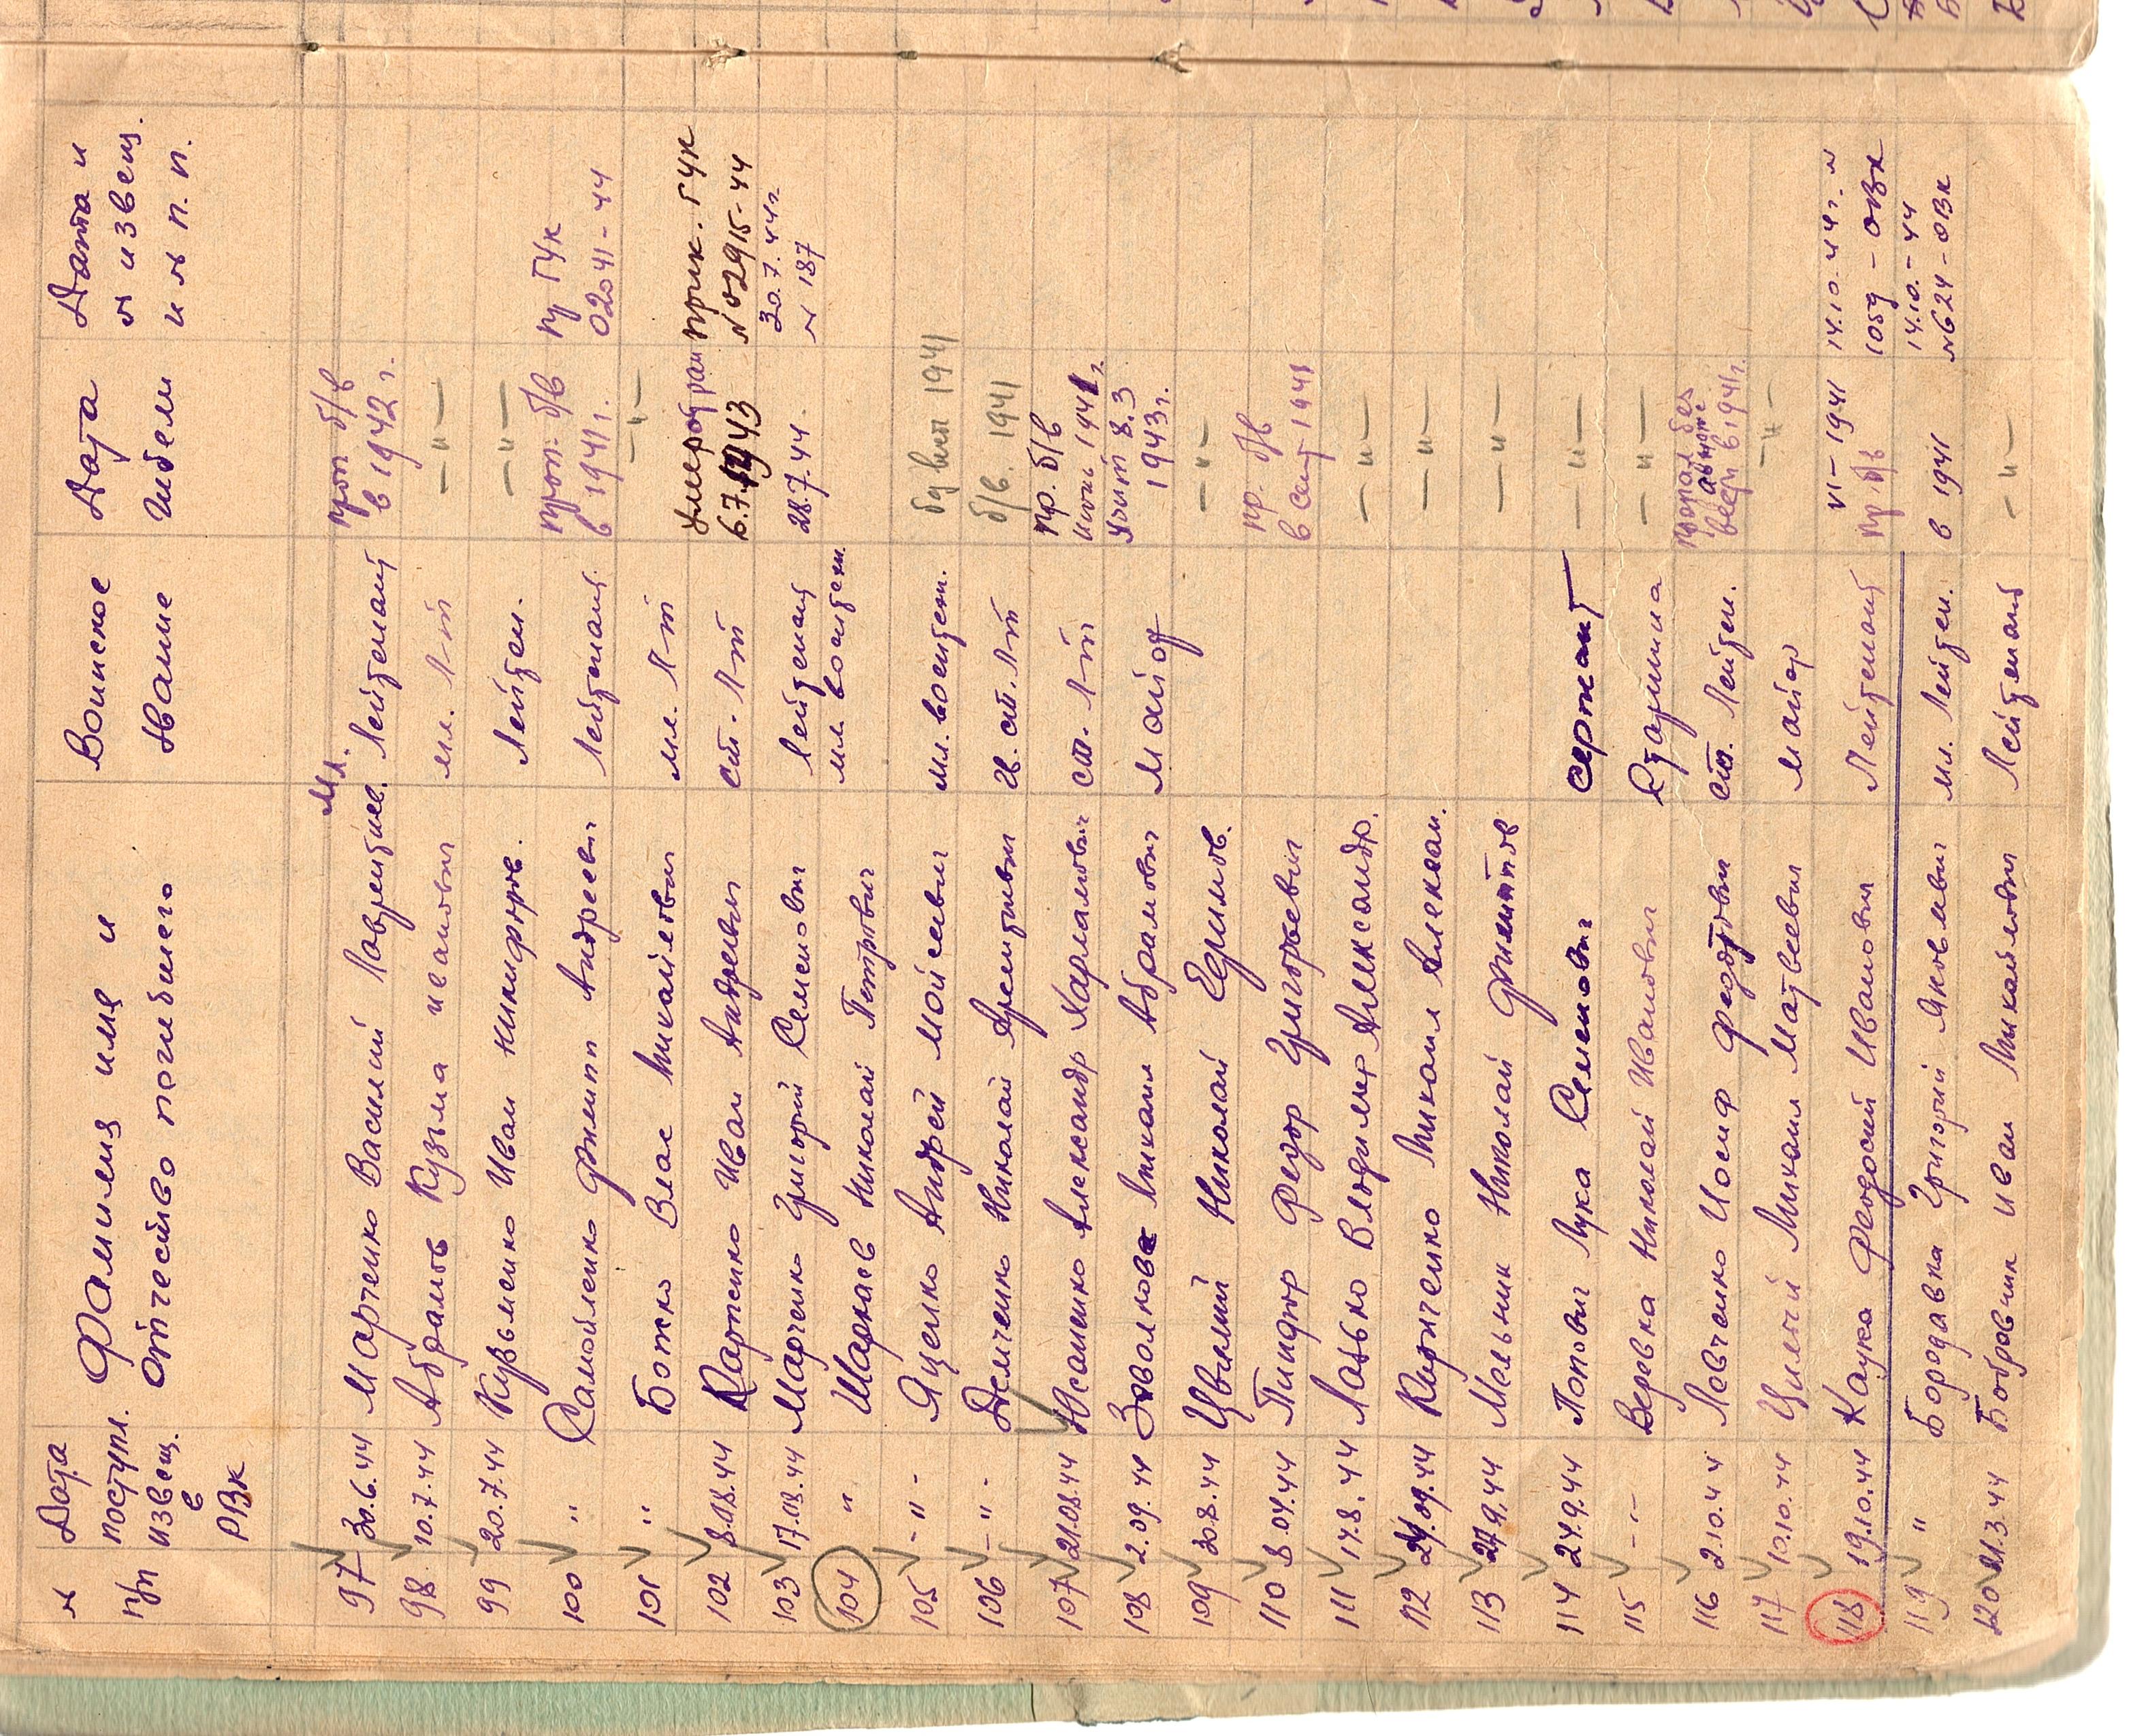 № п/п Дата поступл. извещ. в РВК Фамилия имя и Отчество погибшего Воинское Звание Дата гибели Дата и № извещ. и № п. п.
97 30.6.44 Марченко Василий Лаврентиев. Мл. Лейтенант проп. б/в в 1942 г.
98 10.7.44 Абрамов Кузьма Иванович мл. л-т —"—
99 20.7.44 Кузьменко Иван Никифоров. Лейтен. —"—
100 " Самойленко Филипп Андреевич Лейтенант. проп. б/в в 1941 г. пр ГУК 02041-44
101 " Божко Влас Михайлович мл. Л-т —"—
102 8.08.44 Карпенко Иван Андреевич ст. Л-т Умер от ран 6.7.1943 прик. ГУК №02915-44
103 17.08.44 Марченко Григорий Семенович Лейтенант 28.7.44 30.7.44г. № 187
104 " Шаркаев Николай Петрович мл. воентехн.
105 -"- Яценко Андрей Моисеевич мл. воентехн. 1941
106 -"- Демченко Николай Арсентьевич ст. Л-т б/в. 1941
107 21.08.44 Юсаненко Александр Харлампович ст. Л-т пр. б/в 1941 г.
108 2.09.44 Михаил Абрамович Майор 8.3 1943г.
109 30.8.44 Николай Ефимов. —"—
110 8.04.44 Пиндюр Федор Григорьевич пр. б/в в сент 1941
111 17.8.44 Латько Владимир Александр. —"—
112 24.09.44 Кириченко Михаил Алексан. —"—
113 27.9.44 Мельник Николай Филиппов —"—
114 24.9.44 Попович Лука Семенович сержант —"—
115 -"- Веревка Николай Иванович Старшина —"—
116 2.10.44 Левченко Иосиф Федотович ст. Лейтен. пропал без вест в 1941г.
117 10.10.44 Цилый Михаил Матвеевич майор —"—
118 19.10.44 Каука Феодосий Иванович Лейтенант VI-1941 пр б/в 14.10.44г. № 1059-ОВК
119 " Бородавка Григорий Яковлевич мл. Лейтен. в 1941 14.10.-44 №624-ОВК
120 21.3.44 Бобровник Иван Михайлович Лейтенант —"—